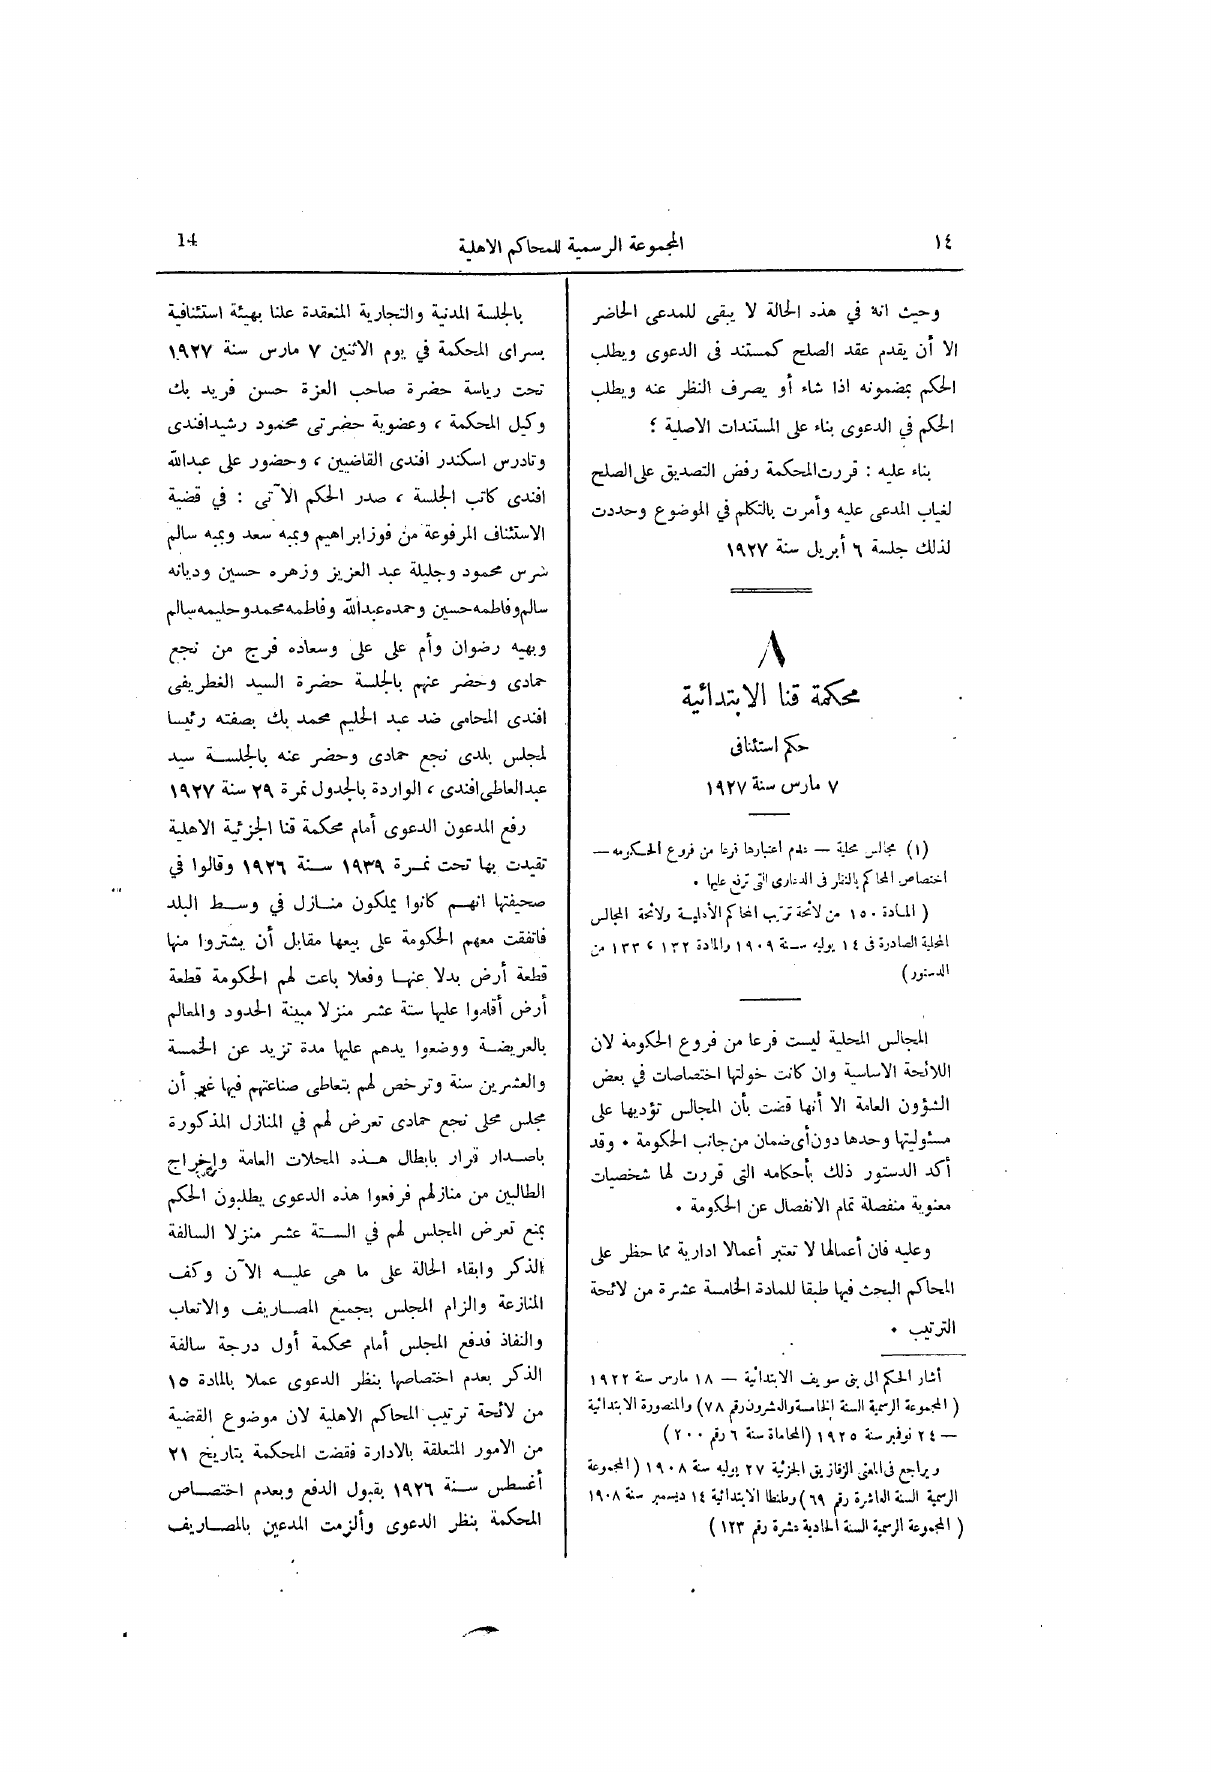 ١٤
المجموعة الرسمية للمحاكم الاهلية
14
وحيث انه في هذه الحالة لا يبقى للمدعى الحاضر
الا أن يقدم عقد الصلح كمستند فى الدعوى ويطلب
الحكم بمضمونه اذا شاء أو يصرف النظر عنه ويطلب
الحكم في الدعوى بناء على المستندات الاصلية ؛
بناء عليه : قررت المحكمة رفض التصديق على الصلح
لغياب المدعى عليه وأمرت بالتكلم في الموضوع وحددت
لذلك جلسة ٦ أبريل سنة ١٩٢٧
٨
محكمة قنا الابتدائية
حكم استئنافى
٧ مارس سنة ١٩٢٧
(١) مجالس محلية — عدم اعتبارها فرعا من فروع الحكومه —
اختصاص المحاكم بالنظر فى الدعاوى التى ترفع عليها .
( المادة ١٥٠ من لائحة ترتيب المحاكم الأهلية ولائحة المجالس
المحلية الصادرة فى ١٤ يوليه سنة ١٩٠٩ والمادة ١٣٢ ، ١٣٣ من
الدستور)
المجالس المحلية ليست فرعا من فروع الحكومة لان
اللائحة الاساسية وان كانت خولتها اختصاصات في بعض
الشؤون العامة الا أنها قضت بأن المجالس تؤديها على
مسئوليتها وحدها دون أى ضمان من جانب الحكومة . وقد
أكد الدستور ذلك بأحكامه التى قررت لها شخصيات
معنوية منفصلة تمام الانفصال عن الحكومة .
وعليه فان أعمالها لا تعتبر أعمالا ادارية مما حظر على
المحاكم البحث فيها طبقا للمادة الخامسة عشرة من لائحة
الترتيب .
أشار الحكم الى بنى سويف الابتدائية — ١٨ مارس سنة ١٩٢٢
( المجموعة الرسمية السنة الخامسة والعشرون رقم ٧٨) والمنصورة الابتدائية
— ٢٤ نوفمبر سنة ١٩٢٥ (المحاماة سنة ٦ رقم ٢٠٠)
ويراجع فى المعنى الزقازيق الجزئية ٢٧ يوليه سنة ١٩٠٨ ( المجموعة
الرسمية السنة العاشرة رقم ٦٩) وطنطا الابتدائية ١٤ ديسمبر سنة ١٩٠٨
( المجموعة الرسمية السنة الحادية عشرة رقم ١٢٣ )
بالجلسة المدنية والتجارية المنعقدة علنا بهيئة استئنافية
بسراى المحكمة في يوم الاثنين ٧ مارس سنة ١٩٢٧
تحت رياسة حضرة صاحب العزة حسن فريد بك
وكيل المحكمة ، وعضوية حضرتى محمود رشيد افندى
وتادرس اسكندر افندى القاضيين ، وحضور على عبدالله
افندى كاتب الجلسة ، صدر الحكم الآتى : في قضية
الاستئناف المرفوعة من فوز ابراهيم وبمبه سعد وبمبه سالم
شرس محمود وجليلة عبد العزيز وزهره حسين وديانه
سالم وفاطمه حسين وحمده عبدالله وفاطمه محمد وحليمه سالم
وبهيه رضوان وأم على على وسعاده فرج من نجع
حمادى وحضر عنهم بالجلسة حضرة السيد الغطريفى
افندى المحامى ضد عبد الحليم محمد بك بصفته رئيسا
لمجلس بلدى نجع حمادى وحضر عنه بالجلسة سيد
عبد العاطى افندى ، الواردة بالجدول نمرة ٢٩ سنة ١٩٢٧
رفع المدعون الدعوى أمام محكمة قنا الجزئية الاهلية
تقيدت بها تحت نمرة ١٩٣٩ سنة ١٩٢٦ وقالوا في
صحيفتها انهم كانوا يملكون منازل في وسط البلد
فاتفقت معهم الحكومة على بيعها مقابل أن يشتروا منها
قطعة أرض بدلا عنها وفعلا باعت لهم الحكومة قطعة
أرض أقاموا عليها ستة عشر منزلا مبينة الحدود والمعالم
بالعريضة ووضعوا يدهم عليها مدة تزيد عن الخمسة
والعشرين سنة وترخص لهم بتعاطى صناعتهم فيها غير أن
مجلس محلى نجع حمادى تعرض لهم في المنازل المذكورة
باصدار قرار بابطال هذه المحلات العامة وإخراج
الطالبين من منازلهم فرفعوا هذه الدعوى يطلبون الحكم
بمنع تعرض المجلس لهم في الستة عشر منزلا السالفة
الذكر وابقاء الحالة على ما هى عليه الآن وكف
المنازعة والزام المجلس بجميع المصاريف والاتعاب
والنفاذ فدفع المجلس أمام محكمة أول درجة سالفة
الذكر بعدم اختصاصها بنظر الدعوى عملا بالمادة ١٥
من لائحة ترتيب المحاكم الاهلية لان موضوع القضية
من الامور المتعلقة بالادارة فقضت المحكمة بتاريخ ٢١
أغسطس سنة ١٩٢٦ بقبول الدفع وبعدم اختصاص
المحكمة بنظر الدعوى وألزمت المدعين بالمصاريف